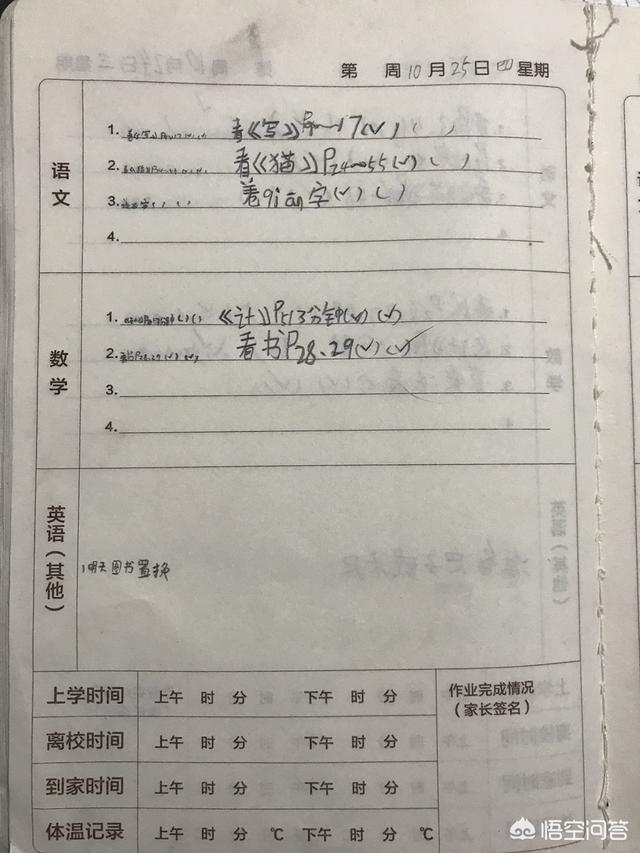 第 周 10月25日 四 星期
语文
1. 看《写》P 17(√) ( )
2. 看《猫》P24~55(√) ( )
3. 着qiān字(√) ( )
4.
数学
1. 《计》P513分钟(√) (√)
2. 看书P28、29(√) (√) 看书P28、29(√) (√)
3.
4.
英语(其他)
明天图书置换
上学时间 上午 时 分 下午 时 分 作业完成情况
(家长签名)
离校时间 上午 时 分 下午 时 分
到家时间 上午 时 分 下午 时 分
体温记录 上午 时 分 ℃ 下午 时 分 ℃
悟空问答